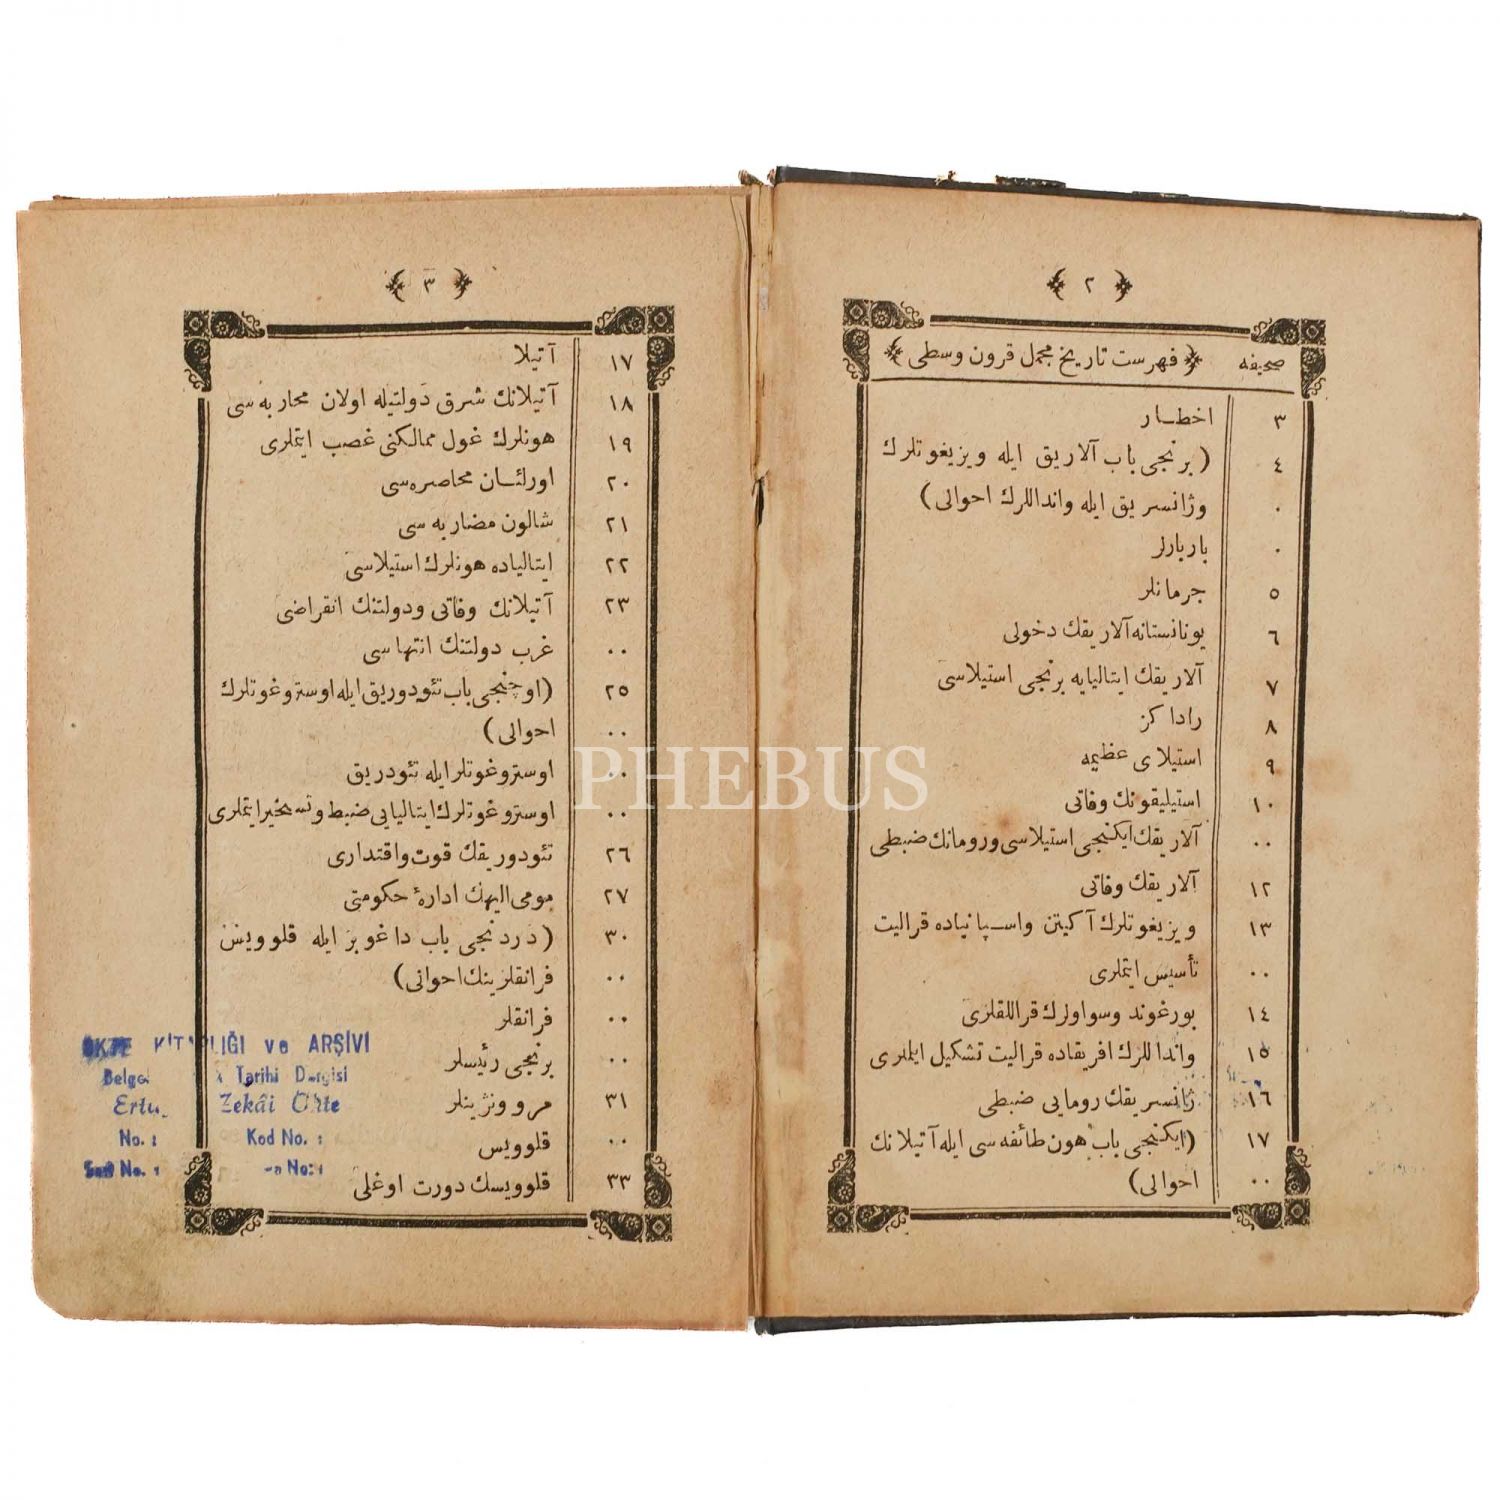 ﴿ ٢ ﴾
صحیفه ﴿ فهرست تاریخ مجمل قرون وسطی ﴾
٣ اخطـار
٤ ( برنجی باب آلاریق ایله ویزیغوتلرك
٠ وژانسریق ایله وانداللرك احوالی )
٠ باربارلر
٥ جرمانلر
٦ یونانستانه آلاریقك دخولی
٧ آلاریقك ایتالیایه برنجی استیلاسی
٨ راداكز
٩ استیلای عظیمه
١٠ استیلیقونك وفاتی
٠٠ آلاریقك ایكنجی استیلاسی ورومانك ضبطی
١٢ آلاریقك وفاتی
١٣ ویزیغوتلرك آكیتن واسـپانیاده قرالیت
٠٠ تأسیس ایتملری
١٤ بورغوند وسواولرك قراللقلری
١٥ وانداللرك افریقاده قرالیت تشكیل ایملری
١٦ ژانسریقك رومایی ضبطی
١٧ (ایكنجی باب هون طائفه سی ایله آتیلانك
٠٠ احوالی)
﴿ ٣ ﴾
١٧ آتیلا
١٨ آتیلانك شرق دولتیله اولان محاربه سی
١٩ هونلرك غول ممالكنی غصب ایتملری
٢٠ اورلئـان محاصره سی
٢١ شالون مضاربه سی
٢٢ ایتالیاده هونلرك استیلاسی
٢٣ آتیلانك وفاتی ودولتنك انقراضی
٠٠ غرب دولتنك انتهاسی
٢٥ (اوچنجی باب تئودوریق ایله اوستروغوتلرك
٠٠ احوالی )
٠٠ اوستروغوتلر ایله تئودریق
٠٠ اوستروغوتلرك ایتالیایی ضبط وتسخیر ایتملری
٢٦ تئودوریقك قوت واقتداری
٢٧ مومی الیهك ادارهٔ حكومتی
٣٠ ( دردنجی باب داغوبر ایله قلوویسن
٠٠ فرانقلرینك احوالی)
٠٠ فرانقلر
٠٠ برنجی رئیسلر
٣١ مروونژینلر
٠٠ قلوویس
٣٣ قلوویسك دورت اوغلی
ÖKTE KİTAPLIĞI ve ARŞİVİ
Tarihi Dergisi
Zekâi Ökte
No. : Kod No. :
No. : No:
PHEBUS